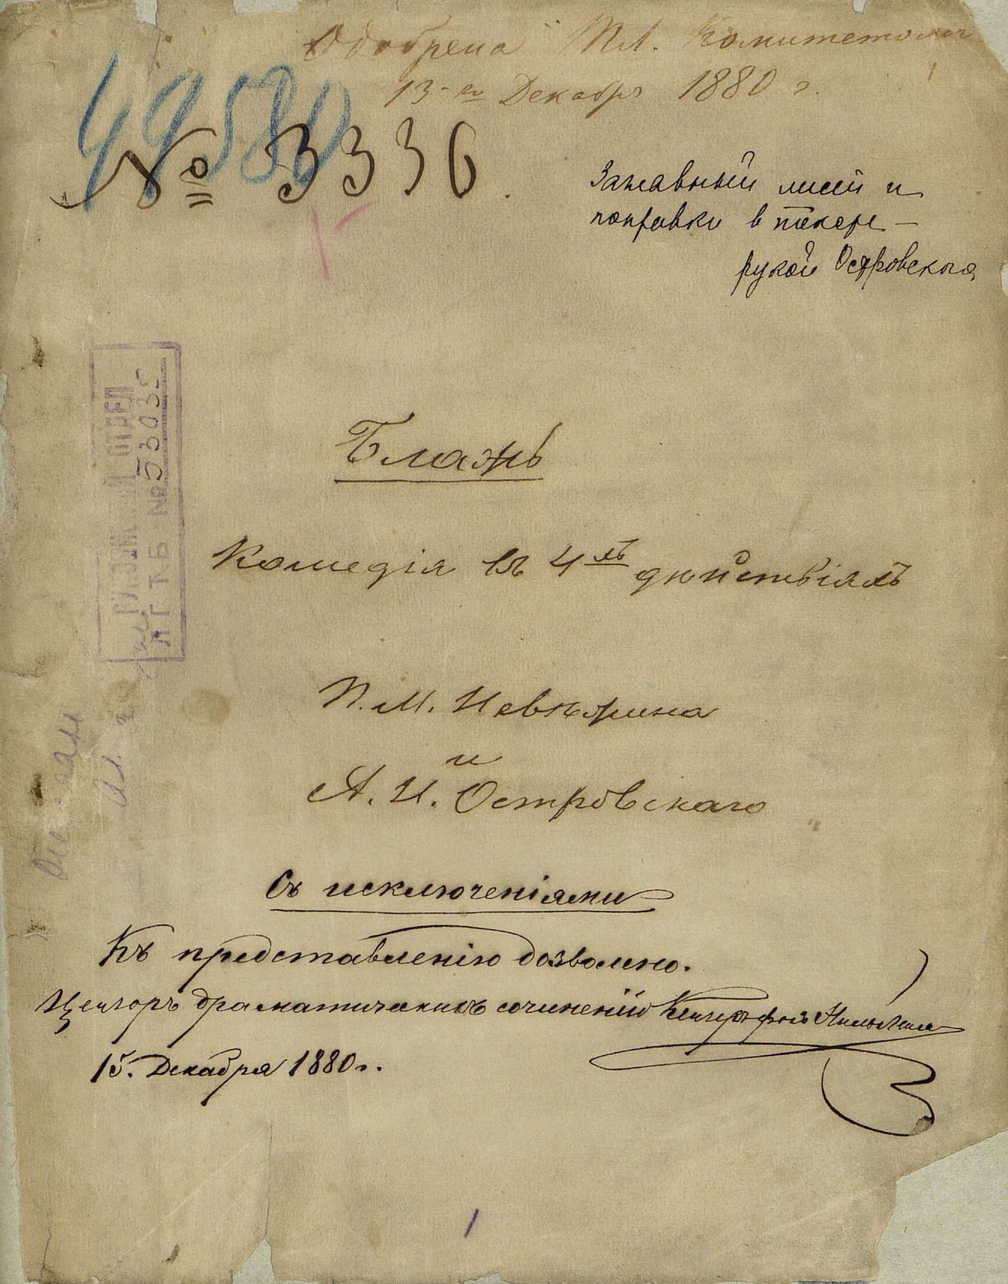 Одобрена Т.Л. Комитетомъ
13-го Декабр 1880 г.
49580
№ 3336.
Заглавный лист и
поправки в тексте —
рукой Островского
РУКОПИСНЫЙ ОТДЕЛ
Л Г Т Б № 53035
Блажь
Комедія въ 4хъ дѣйствіяхъ
П. М. Невѣжина
и
А. Н. Островскаго
Съ исключеніями
Къ представленію дозволено.
Цензоръ драматическихъ сочиненій Кейзеръ фонъ
15. Декабря 1880 г.
1